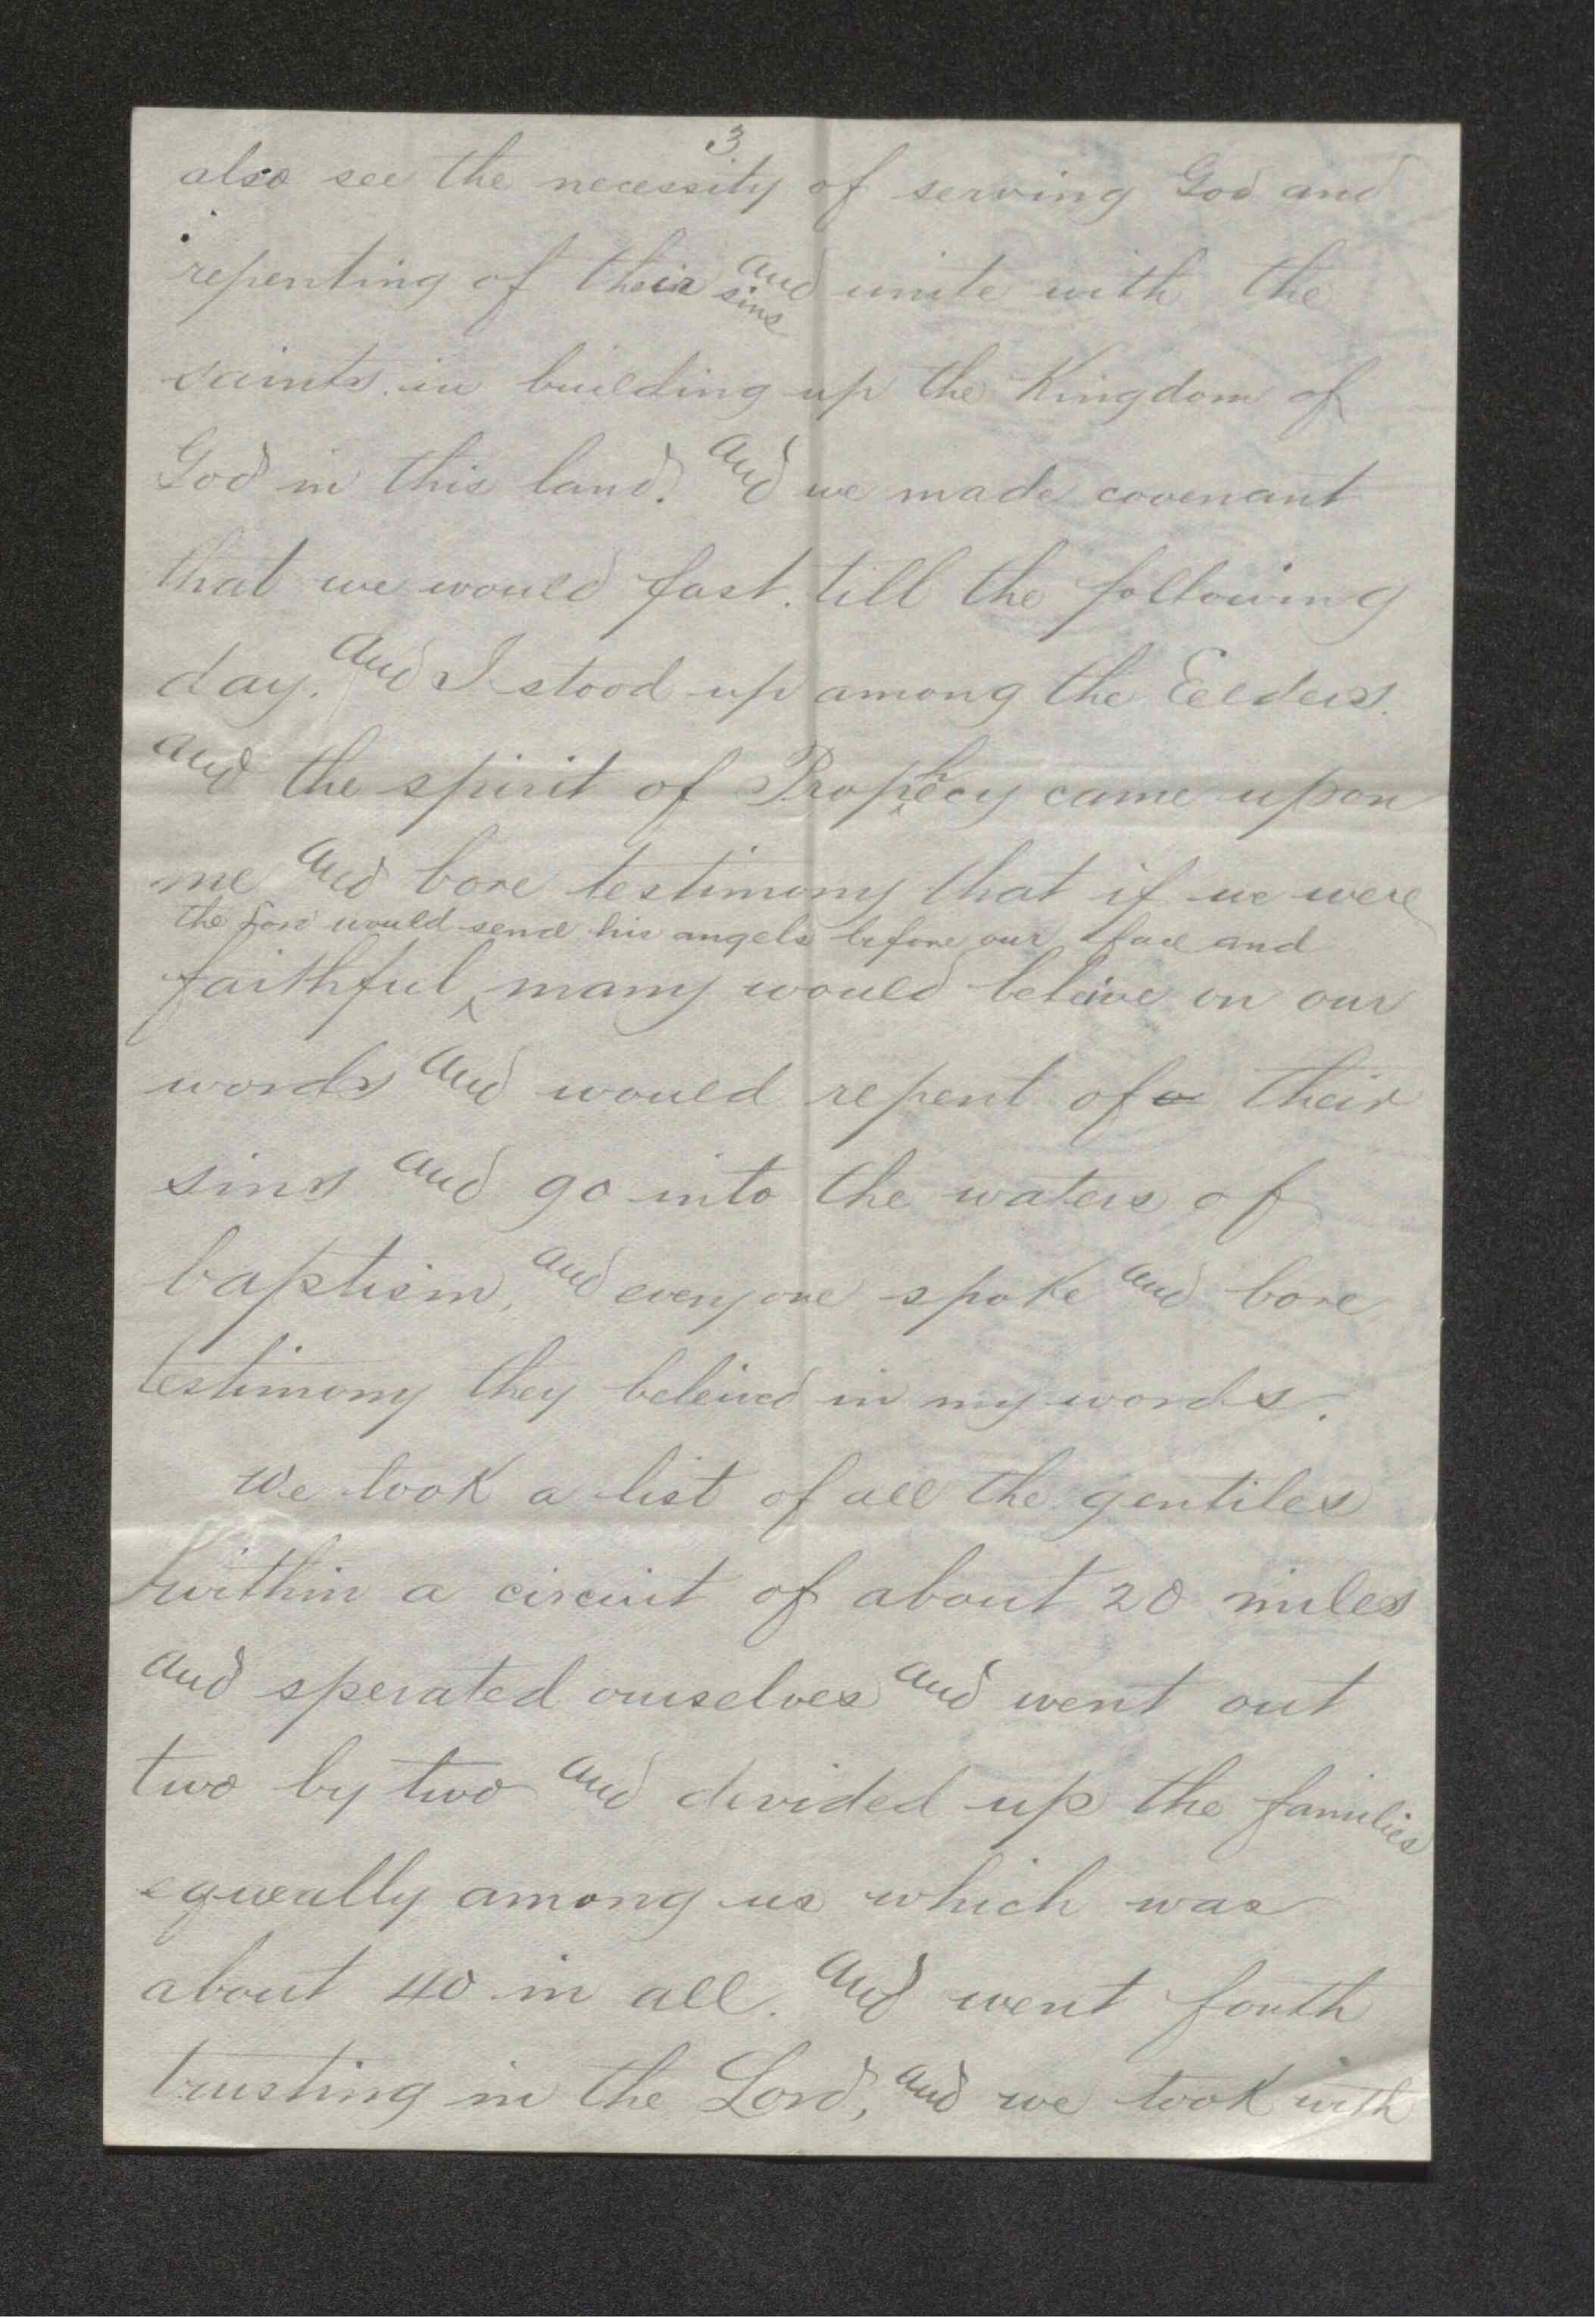 3
also see the necessity of serving God and
repenting of their sins and unite with the
saints in building up the Kingdom of
God in this land. and we made covenant
that we would fast. till the following
day. and I stood up among the Eelders.
and the spirit of Prophecy came upon
me and bore testimony that if we were
the Lord would send his angels before our face and
faithful ‸ many would beleive on our
words and would repent of o their
sins and go into the waters of
baptism, and everyone spoke and bore
testimony they beleived in my words.
We took a list of all the gentiles
within a circuit of about 20 miles
and sperated ourselves and went out
two by two and devided up the families
equeally among us which was
about 40 in all. and went fouth
trusting in the Lord, and we took with